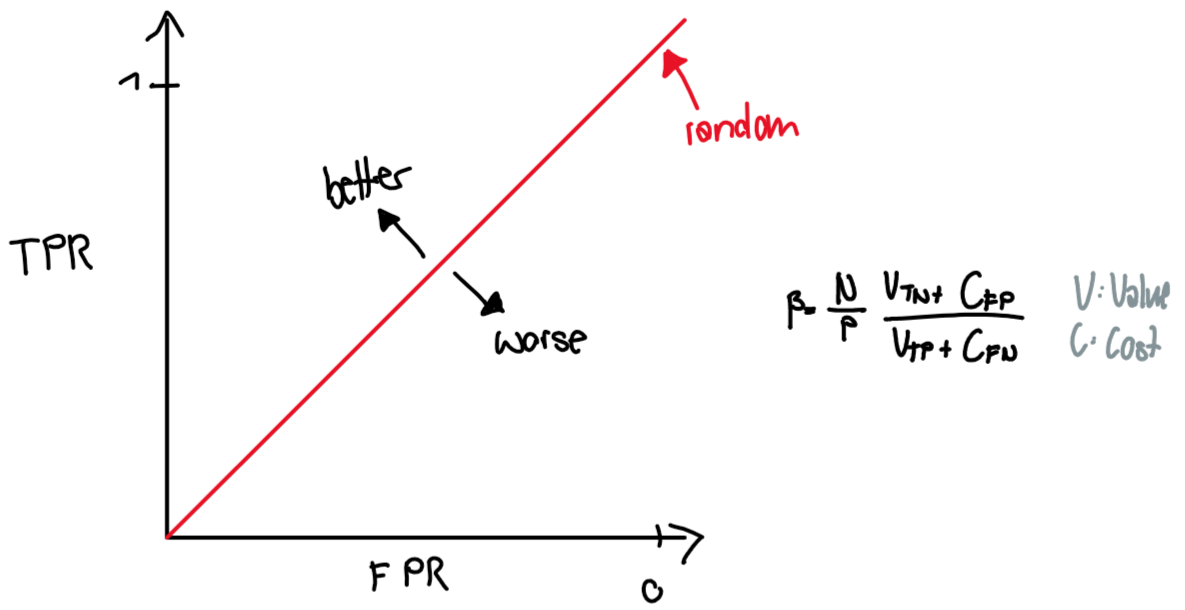 1
random
better
TPR
worse
β = N/P (V_TN + C_FP)/(V_TP + C_FN)
V: Value
C: Cost
FPR
0